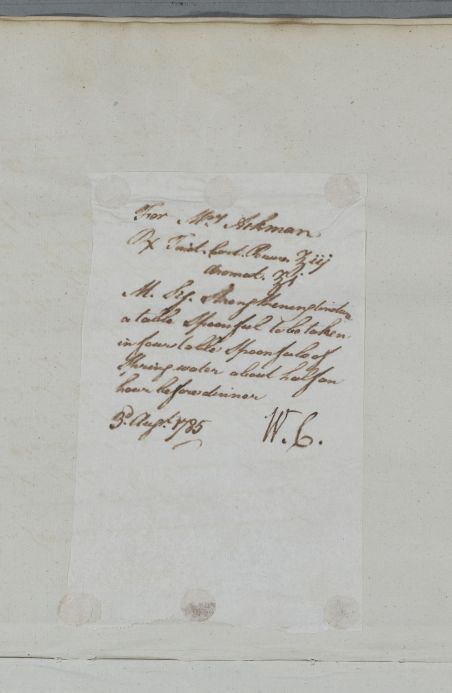 For Mrs Aikman
℞ Tinct. Cort. Peruv. ℥iij
Aromat. ℥j
M. Sig. Strengthening tincture
a table Spoonful to be taken
in four table Spoonfuls of
Spring water about half an
hour before dinner
3d. Augt. 1785 W. C.